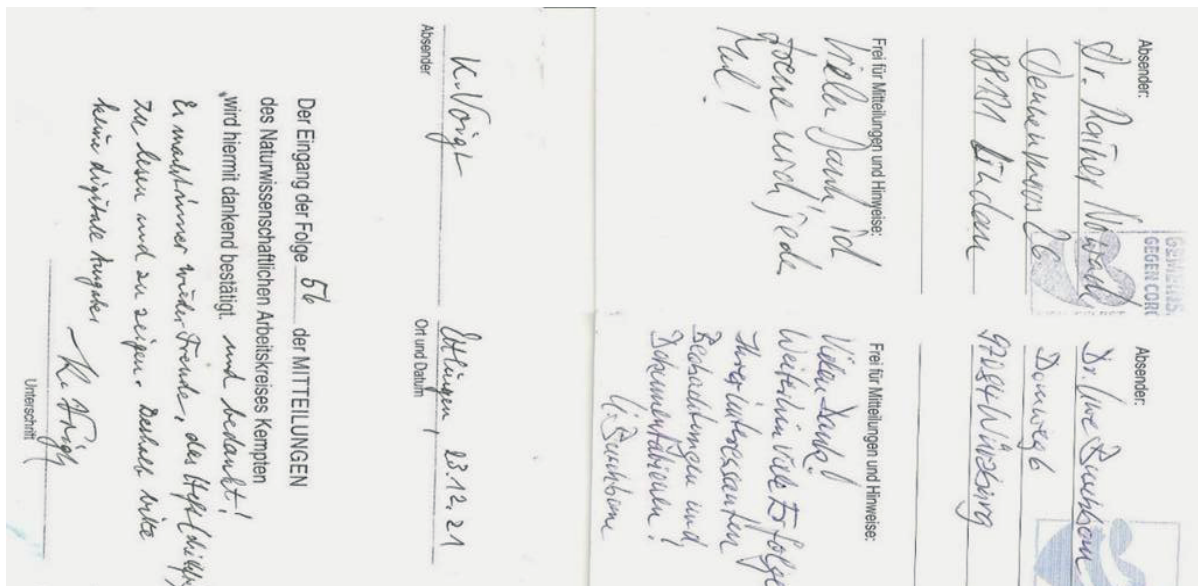 K. Voigt
Absender
Ettlingen, 23.12.21
Ort und Datum
Der Eingang der Folge 56 der MITTEILUNGEN
des Naturwissenschaftlichen Arbeitskreises Kempten
wird hiermit dankend bestätigt. und bedankt!
Es macht immer wieder Freude, das Heft
zu lesen und zu zeigen. Deshalb bitte
keine digitale Ausgabe
K. Voigt
Unterschrift
Absender:
Dr. Rainer
26
Lindau
GEMEINS
GEGEN COR
Frei für Mitteilungen und Hinweise:
Vielen Dank, ich
freue mich jedes
Mal!
Absender:
Dr. Uwe Buchbaum
Domweg 6
97084 Würzburg
Frei für Mitteilungen und Hinweise:
Vielen Dank!
Weiterhin viele Erfolge
Ihren interessanten
Beobachtungen und
Dokumentationen!